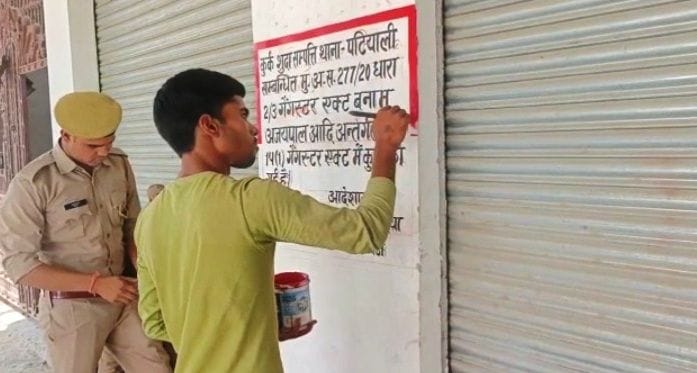 कुर्क शुदा सम्पत्ति थाना- पटियाली
सम्बन्धित मु. अ. स. 277/20 धारा
2/3 गैंगस्टर एक्ट बनाम
अजयपाल आदि अन्तर्गत
14(1) गैंगस्टर एक्ट में
गई है।